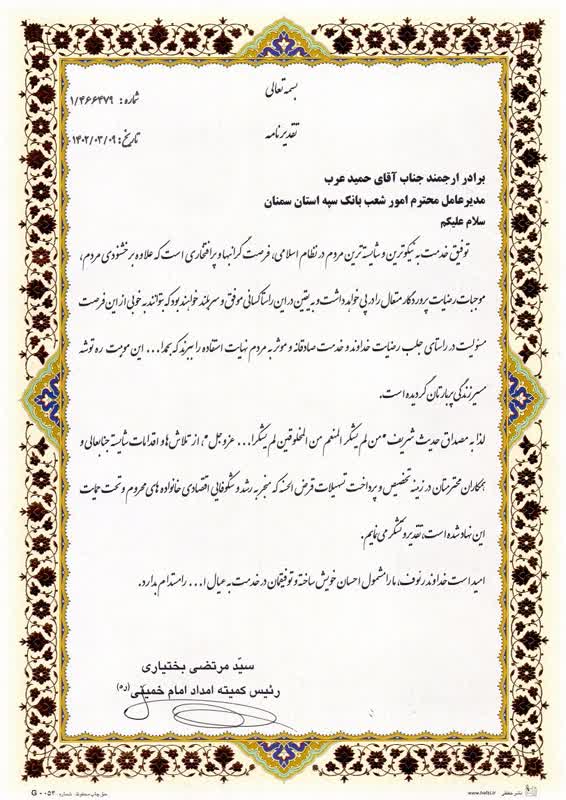 بسمه تعالی
شماره: ۱/۴۶۶۴۷۹
تقدیرنامه
تاریخ: ۱۴۰۲/۰۳/۰۹
برادر ارجمند جناب آقای حمید عرب
مدیرعامل محترم امور شعب بانک سپه استان سمنان
سلام علیکم
توفیق خدمت به نیکوترین و شایسته ترین مردم در نظام اسلامی، فرصت گرانبها و پرافتخاری است که علاوه بر خشنودی مردم،
موجبات رضایت پروردگار متعال را در پی خواهد داشت و به یقین در این راستا کسانی موفق و سربلند خواهند بود که بتوانند به خوبی از این فرصت
مسئولیت در راستای جلب رضایت خداوند و خدمت صادقانه و موثر به مردم نهایت استفاده را ببرند که بحمدا... این موهبت ره توشه
مسیر زندگی پربارتان گردیده است.
لذا به مصداق حدیث شریف «من لم یشکر المنعم من المخلوقین لم یشکرا... عزوجل»، از تلاش ها و اقدامات شایسته جنابعالی و
همکاران محترمتان در زمینه تخصیص و پرداخت تسهیلات قرض الحسنه که منجر به رشد و شکوفایی اقتصادی خانواده های محروم و تحت حمایت
این نهاد شده است، تقدیر و تشکر می نمایم.
امید است خداوند رئوف، ما را مشمول احسان خویش ساخته و توفیقمان در خدمت به عیال ا... را مستدام بدارد.
سیّد مرتضی بختیاری
رئیس کمیته امداد امام خمینی (ره)
حق چاپ محفوظ. شماره: G - ۰۵۳
www.hafzi.ir نشر حفظی